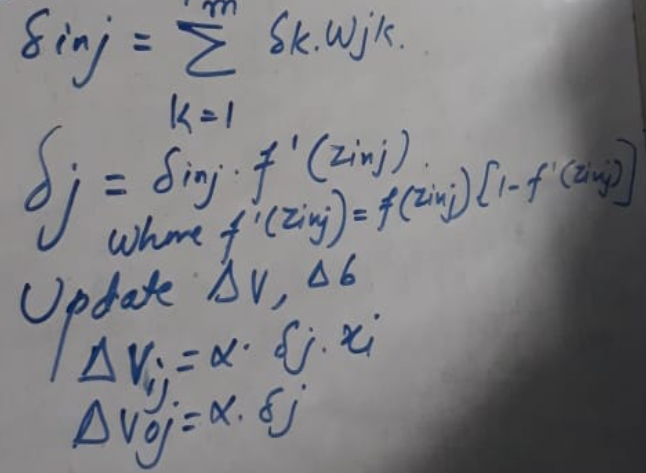 δinj = m∑k=1 δk.wjk.
δj = δinj. f'(zinj).
where f'(zinj) = f(zinj)[1-f'(zinj)]
Update ΔV, Δb
ΔVij = α. δj. xi
ΔVoj = α. δj